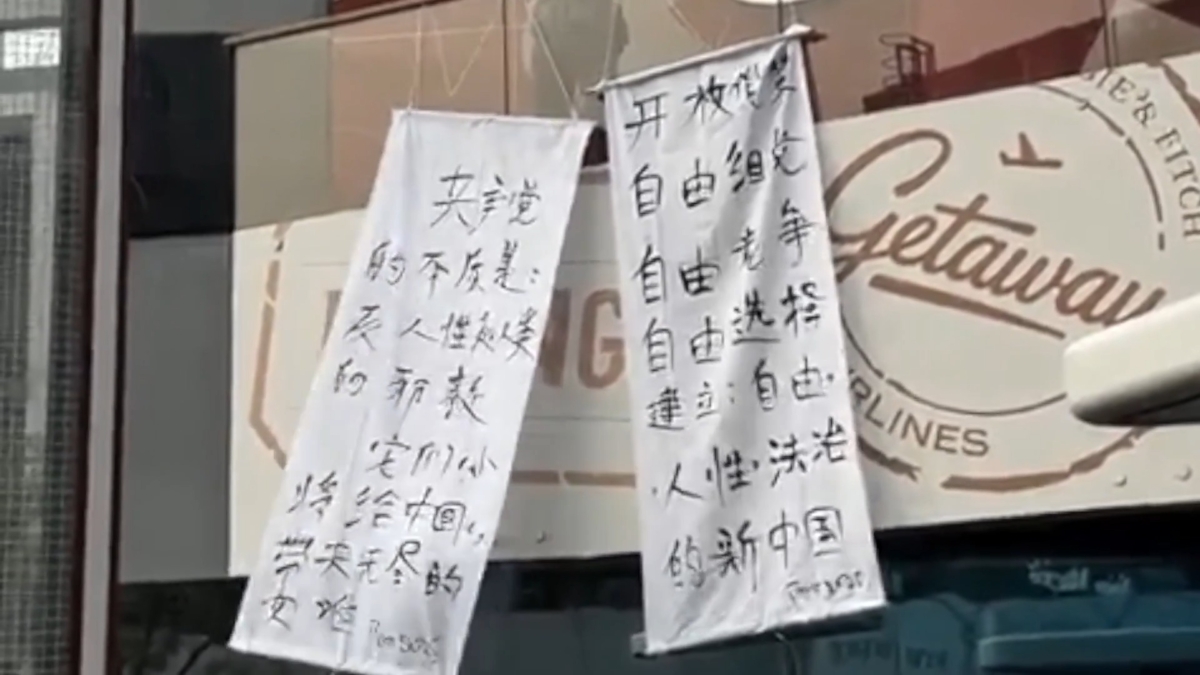 共产党
的本质是:
反人性反人类
的邪教
它们必
将给中国,
带来无尽的
灾难
开放报禁
自由组党
自由竞争
自由选择
建立:自由·
·人性·法治
的新中国
Getaway
IE'S FITCH
RLINES
NG